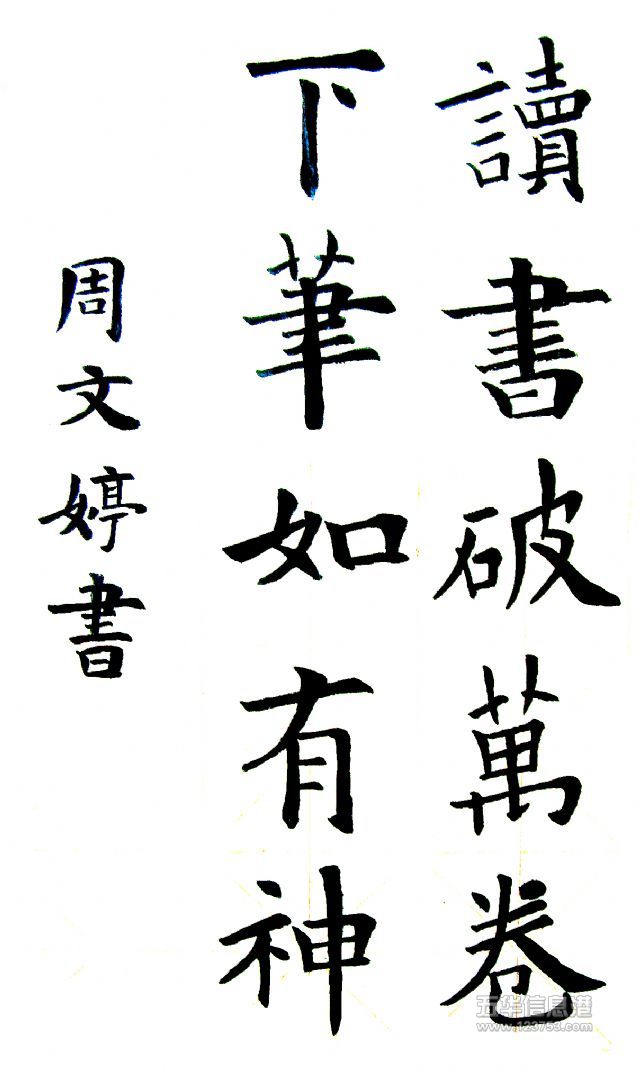 讀書破萬卷
下筆如有神
周文婷書
五华信息港
www.123753.com